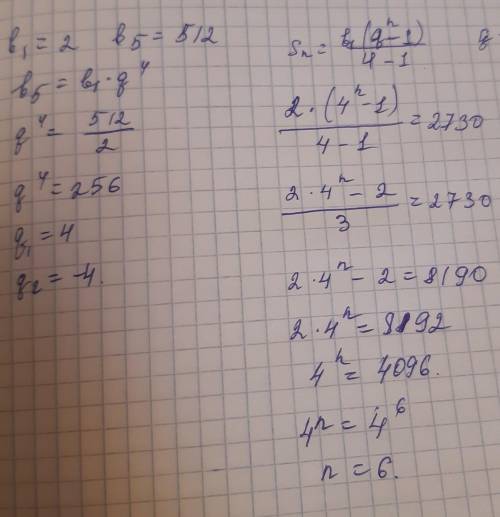 b₁ = 2   b₅ = 512
b₅ = b₁ · q⁴
q⁴ = 512/2
q⁴ = 256
q₁ = 4
q₂ = -4.
Sₙ = b₁(qⁿ-1)/4-1   q
2 · (4ⁿ-1)/4-1 = 2730
2 · 4ⁿ - 2/3 = 2730
2 · 4ⁿ - 2 = 8190
2 · 4ⁿ = 8192
4ⁿ = 4096.
4ⁿ = 4⁶
n = 6.